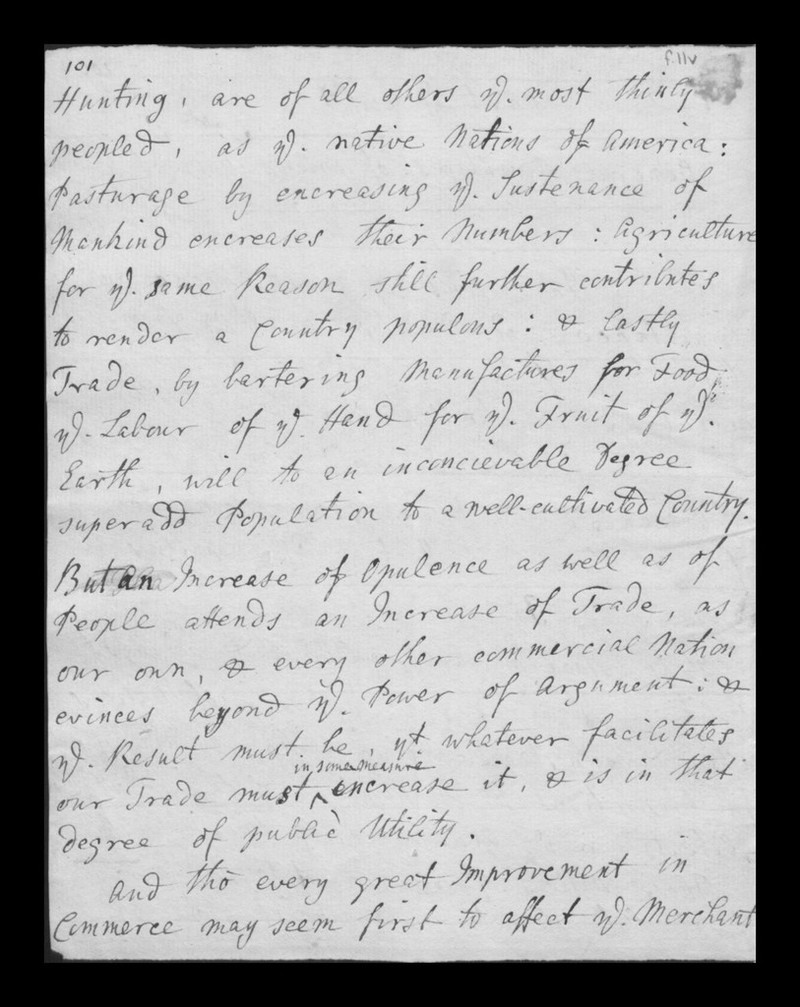 101
f.11v
Hunting, are of all others yͤ. most thinly
peopled, as yͤ. native Nations of America:
Pasturage by encreasing yͤ. Sustenance of
Mankind encreases their Numbers: Agriculture
for yͤ. same Reason still further contributes
to render a Country populous: & lastly
Trade, by bartering Manufactures for Food,
yͤ. Labour of yͤ. Hand for yͤ. Fruit of yͤ.
Earth, will to an inconcievable Degree
superadd Population to a well-cultivated Country.
But an Increase of Opulence as well as of
People attends an Increase of Trade, as
our own, & every other commercial Nation
evinces beyond yͤ. Power of Argument: &
yͤ. Result must be, yt. whatever facilitates
in some measure
our Trade must ‸ encrease it, & is in that
degree of public Utility.
And tho every great Improvement in
Commerce may seem first to affect yͤ. Merchant